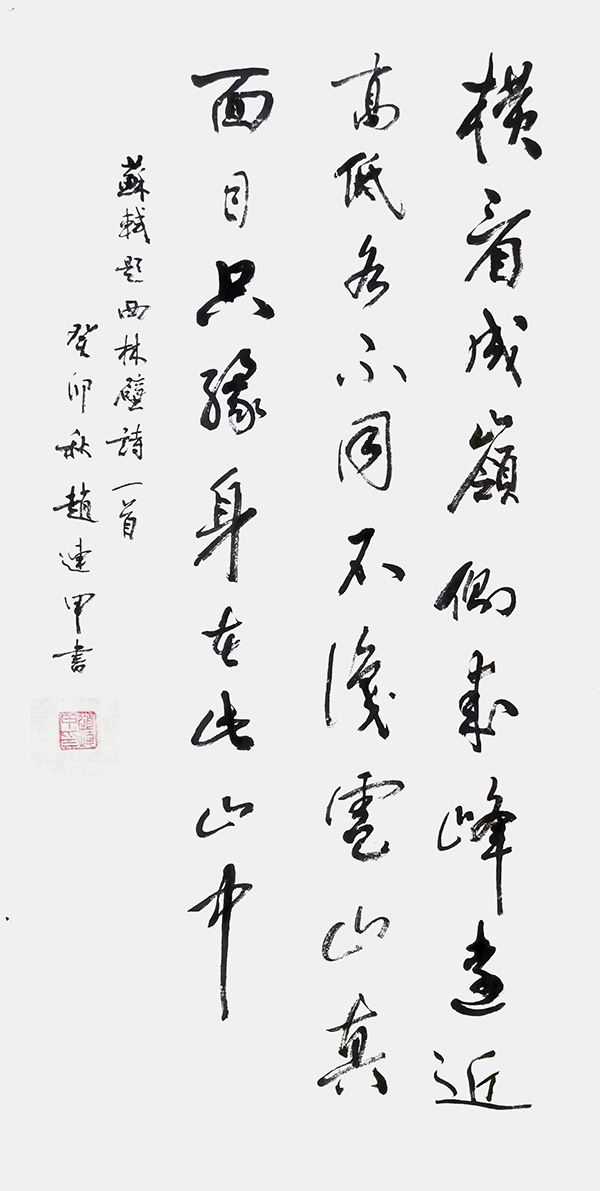 橫看成嶺側成峰遠近
高低各不同不識廬山真
面目只緣身在此山中
蘇軾題西林壁詩一首
癸卯秋趙連甲書
趙連甲印